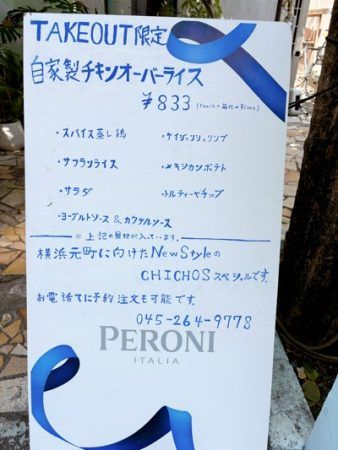 TAKEOUT限定
自家製チキンオーバーライス
¥833
・スパイス蒸し鶏 ・ケイジャンシュリンプ
・サフランライス ・メキシカンポテト
・サラダ ・トルティーヤチップ
・ヨーグルトソース & カクテルソース
※上記の具材が入っています。
横浜元町に向けたNew Styleの
CHICHOSスペシャルです。
お電話にて予約注文も可能です。
045-264-9778
PERONI
ITALIA